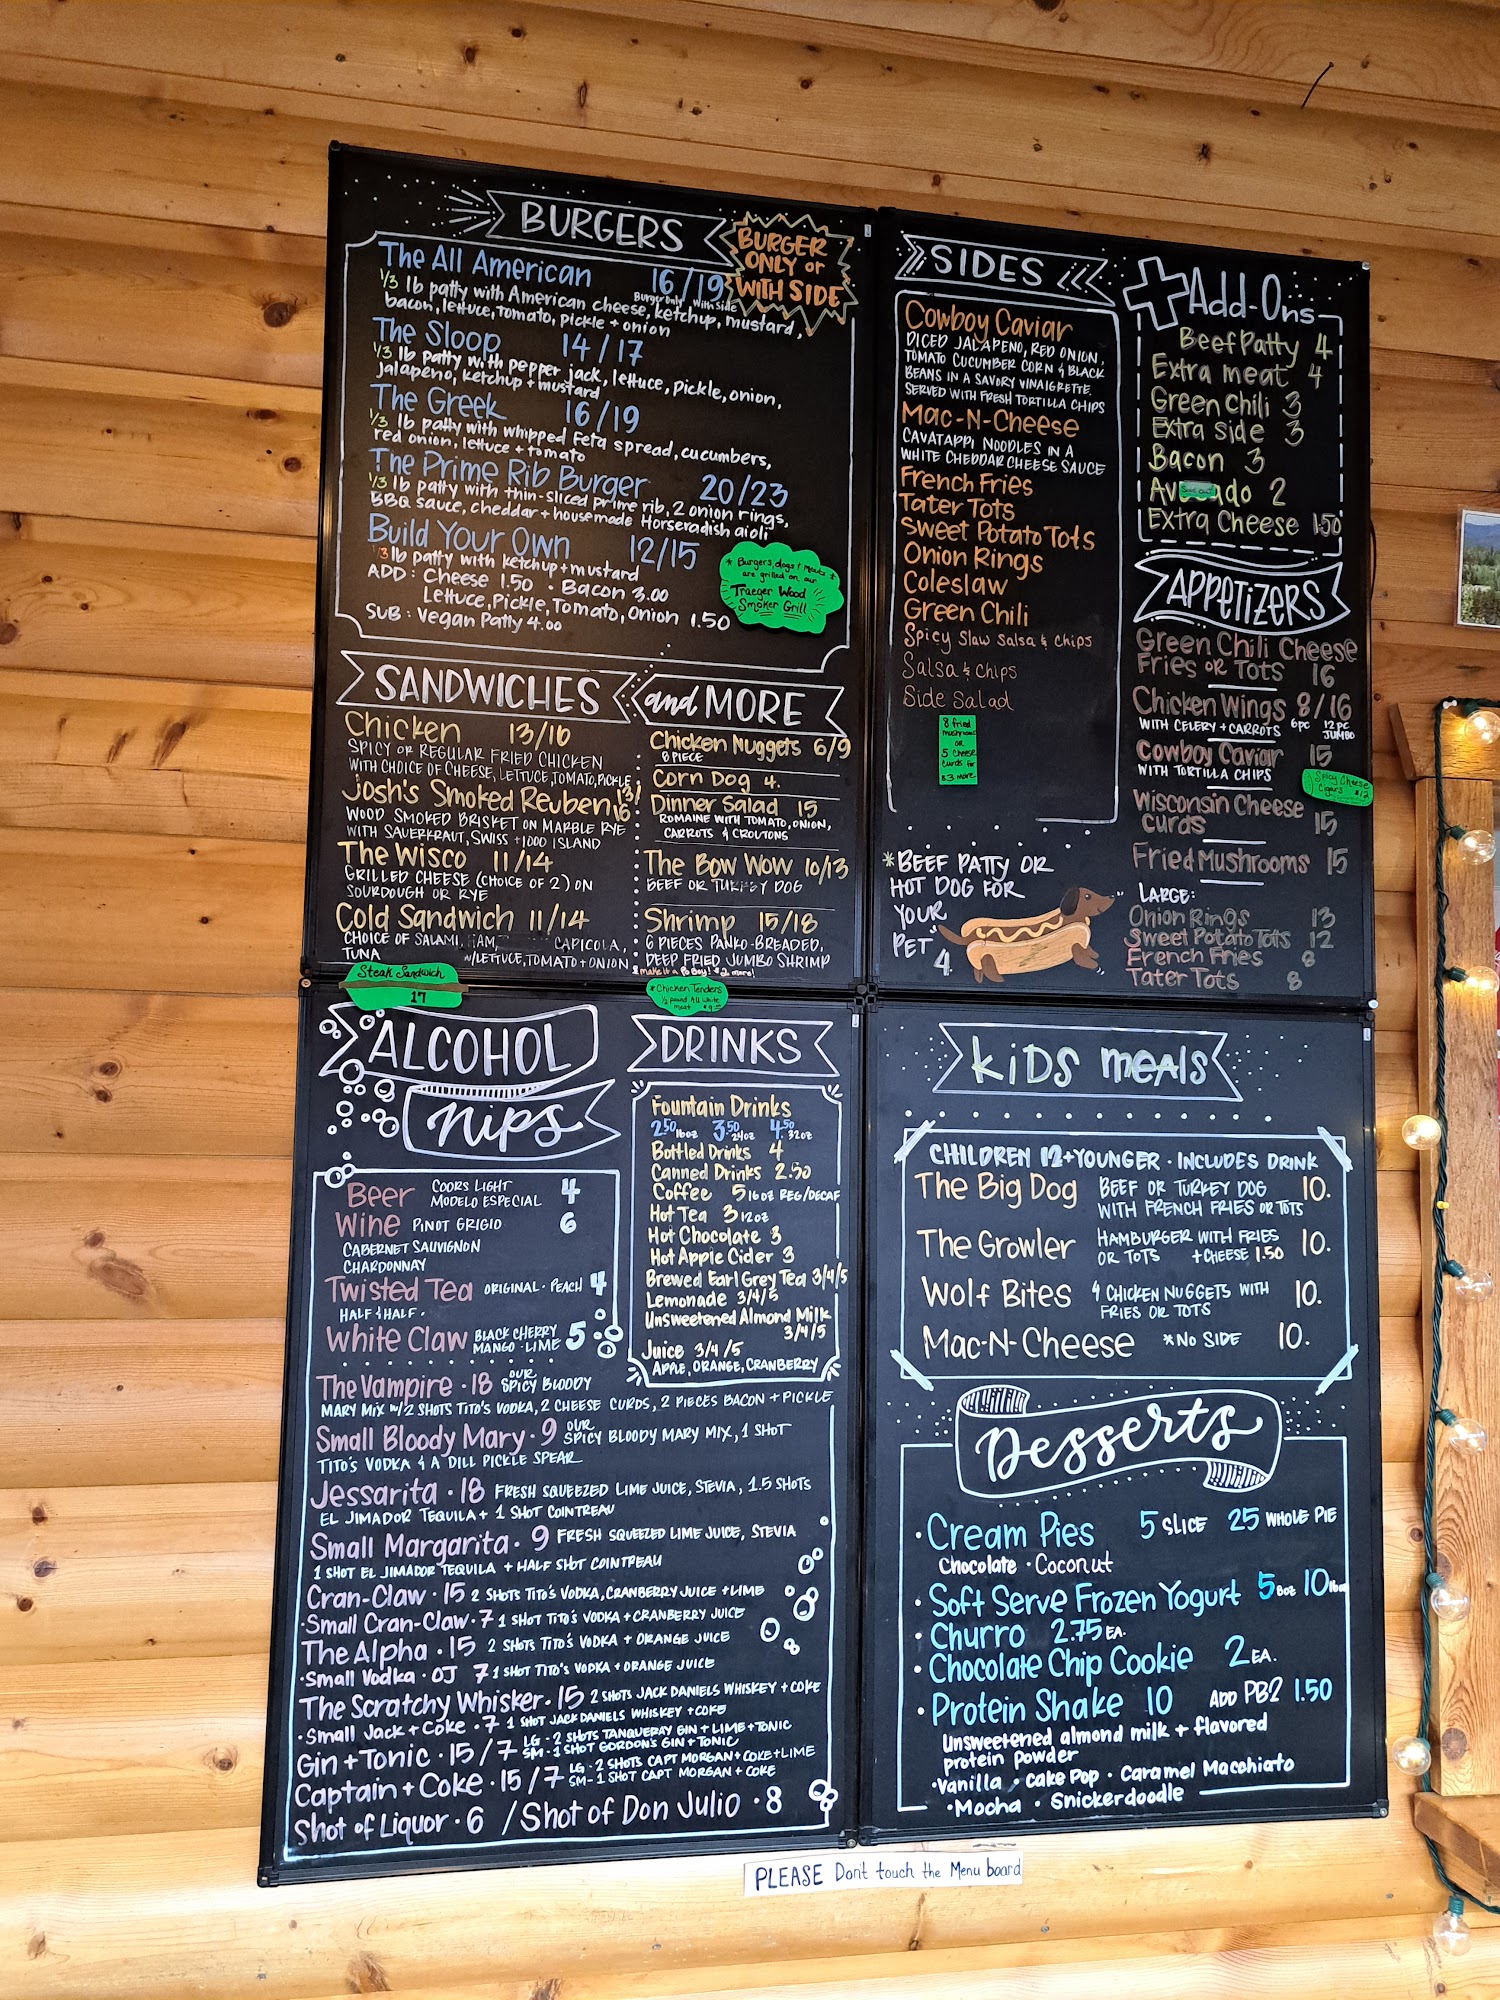 BURGERS
BURGER
ONLY or
WITH SIDE
The All American 16/19
Burger Only With Side
1/3 lb patty with American cheese, ketchup, mustard,
bacon, lettuce, tomato, pickle + onion
The Sloop 14/17
1/3 lb patty with pepper jack, lettuce, pickle, onion,
jalapeno, ketchup + mustard
The Greek 16/19
1/3 lb patty with whipped Feta spread, cucumbers,
red onion, lettuce + tomato
The Prime Rib Burger 20/23
1/3 lb patty with thin-sliced prime rib, 2 onion rings,
BBQ sauce, cheddar + housemade Horseradish aioli
Build Your Own 12/15
1/3 lb patty with ketchup + mustard
ADD: Cheese 1.50 • Bacon 3.00
Lettuce, Pickle, Tomato, Onion 1.50
SUB: Vegan Patty 4.00
* Burgers, dogs & meats *
are grilled on our
Traeger Wood
Smoker Grill
SANDWICHES
Chicken 13/16
SPICY OR REGULAR FRIED CHICKEN
WITH CHOICE OF CHEESE, LETTUCE, TOMATO, PICKLE
Josh's Smoked Reuben 13/16
WOOD SMOKED BRISKET ON MARBLE RYE
WITH SAUERKRAUT, SWISS + 1000 ISLAND
The Wisco 11/14
GRILLED CHEESE (CHOICE OF 2) ON
SOURDOUGH OR RYE
Cold Sandwich 11/14
CHOICE OF SALAMI, HAM, CAPICOLA,
TUNA W/LETTUCE, TOMATO + ONION
Steak Sandwich
17
and MORE
Chicken Nuggets 6/9
8 PIECE
Corn Dog 4.
Dinner Salad 15
ROMAINE WITH TOMATO, ONION,
CARROTS & CROUTONS
The Bow Wow 10/13
BEEF OR TURKEY DOG
Shrimp 15/18
6 PIECES PANKO-BREADED,
DEEP FRIED JUMBO SHRIMP
make it a Po Boy! $2 more!
*Chicken Tenders
1/2 pound All white
meat
SIDES
Cowboy Caviar
DICED JALAPENO, RED ONION,
TOMATO CUCUMBER CORN & BLACK
BEANS IN A SAVORY VINAIGRETTE.
SERVED WITH FRESH TORTILLA CHIPS
Mac-N-Cheese
CAVATAPPI NOODLES IN A
WHITE CHEDDAR CHEESE SAUCE
French Fries
Tater Tots
Sweet Potato Tots
Onion Rings
Coleslaw
Green Chili
Spicy Slaw Salsa & Chips
Salsa & Chips
Side Salad
8 fried
mushrooms
OR
5 Cheese
curds for
$3 more
*BEEF PATTY OR
HOT DOG FOR
YOUR
PET
4.
Add-Ons
Beef Patty 4
Extra meat 4
Green Chili 3
Extra side 3
Bacon 3
Avocado 2
Extra Cheese 1.50
APPETIZERS
Green Chili Cheese
Fries OR Tots 16
Chicken Wings 8/16
WITH CELERY + CARROTS 6pc 12pc
JUMBO
Cowboy Caviar 15
WITH TORTILLA CHIPS
Spicy Cheese
Cigars $12
Wisconsin Cheese
Curds 15
Fried Mushrooms 15
LARGE:
Onion Rings 13
Sweet Potato Tots 12
French Fries 8
Tater Tots 8
ALCOHOL
Nips
Beer COORS LIGHT 4
MODELO ESPECIAL
Wine PINOT GRIGIO 6
CABERNET SAUVIGNON
CHARDONNAY
Twisted Tea ORIGINAL • PEACH 4
HALF & HALF •
White Claw BLACK CHERRY 5
MANGO • LIME
The Vampire • 18 OUR SPICY BLOODY
MARY MIX w/2 SHOTS TITO'S VODKA, 2 CHEESE CURDS, 2 PIECES BACON + PICKLE
Small Bloody Mary • 9 OUR SPICY BLOODY MARY MIX, 1 SHOT
TITO'S VODKA & A DILL PICKLE SPEAR
Jessarita • 18 FRESH SQUEEZED LIME JUICE, STEVIA, 1.5 SHOTS
EL JIMADOR TEQUILA + 1 SHOT COINTREAU
Small Margarita • 9 FRESH SQUEEZED LIME JUICE, STEVIA
1 SHOT EL JIMADOR TEQUILA + HALF SHOT COINTREAU
Cran-Claw • 15 2 SHOTS TITO'S VODKA, CRANBERRY JUICE + LIME
•Small Cran-Claw • 7 1 SHOT TITO'S VODKA + CRANBERRY JUICE
The Alpha • 15 2 SHOTS TITO'S VODKA + ORANGE JUICE
•Small Vodka • OJ 7 1 SHOT TITO'S VODKA + ORANGE JUICE
The Scratchy Whisker • 15 2 SHOTS JACK DANIELS WHISKEY + COKE
•Small Jack + Coke • 7 1 SHOT JACK DANIELS WHISKEY + COKE
Gin + Tonic • 15/7 LG - 2 SHOTS TANQUERAY GIN + LIME + TONIC
SM - 1 SHOT GORDON'S GIN + TONIC
Captain + Coke • 15/7 LG - 2 SHOTS CAPT MORGAN + COKE + LIME
SM - 1 SHOT CAPT MORGAN + COKE
Shot of Liquor • 6 / Shot of Don Julio • 8
DRINKS
Fountain Drinks
2.50 16oz 3.50 24oz 4.50 32oz
Bottled Drinks 4
Canned Drinks 2.50
Coffee 5 16oz REG/DECAF
Hot Tea 3 12oz
Hot Chocolate 3
Hot Apple Cider 3
Brewed Earl Grey Tea 3/4/5
Lemonade 3/4/5
Unsweetened Almond Milk
3/4/5
Juice 3/4/5
APPLE, ORANGE, CRANBERRY
KIDS MEALS
CHILDREN 12 + YOUNGER • INCLUDES DRINK
The Big Dog BEEF OR TURKEY DOG 10.
WITH FRENCH FRIES OR TOTS
The Growler HAMBURGER WITH FRIES 10.
OR TOTS +CHEESE 1.50
Wolf Bites 4 CHICKEN NUGGETS WITH 10.
FRIES OR TOTS
Mac-N-Cheese *NO SIDE 10.
Desserts
• Cream Pies 5 SLICE 25 WHOLE PIE
Chocolate • Coconut
• Soft Serve Frozen Yogurt 5 8oz 10 16oz
• Churro 2.75 EA.
• Chocolate Chip Cookie 2 EA.
• Protein Shake 10 ADD PB2 1.50
Unsweetened almond milk + flavored
protein powder
•Vanilla • Cake Pop • Caramel Macchiato
•Mocha • Snickerdoodle
PLEASE Dont touch the Menu board